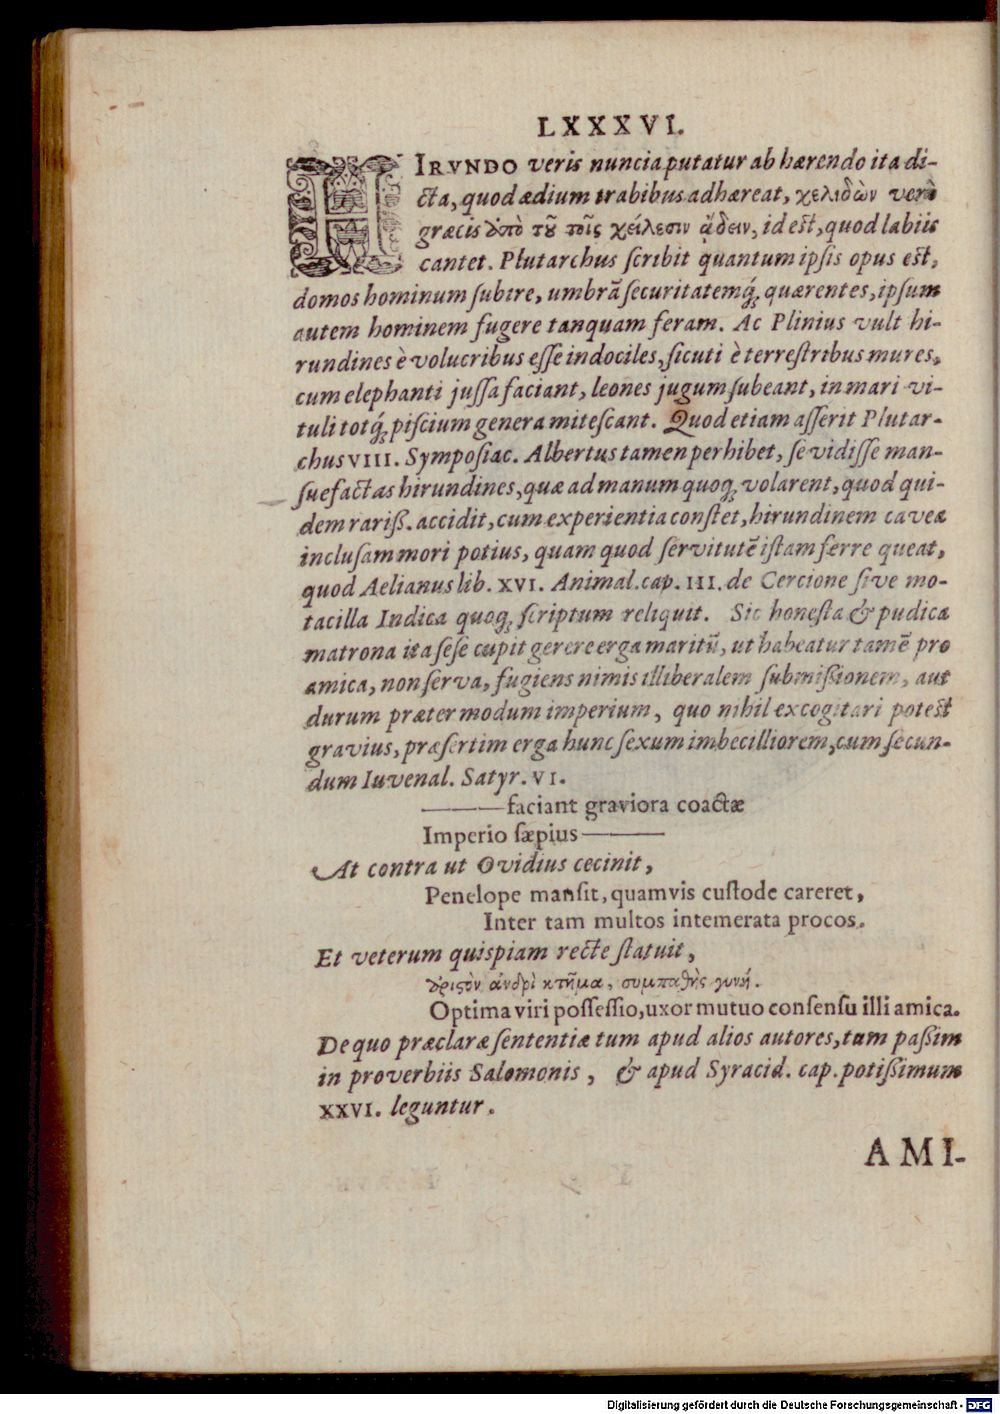 LXXXVI.
HIRVNDO veris nuncia putatur ab hærendo ita di-
cta, quod ædium trabibus adhæreat, χελιδὼν verò
græcis ἀπὸ τȣ̃ τοῖς χείλεσιν ᾄδειν, id est, quod labiis
cantet. Plutarchus scribit quantum ipsis opus est,
domos hominum subire, umbrã securitatemq́; quærentes, ipsum
autem hominem fugere tanquam feram. Ac Plinius vult hi-
rundines è volucribus esse indociles, sicuti è terrestribus mures,
cum elephanti jussa faciant, leones jugum subeant, in mari vi-
tuli totq́; piscium genera mitescant. Quod etiam asserit Plutar-
chus VIII. Symposiac. Albertus tamen perhibet, se vidisse man-
suefactas hirundines, quæ ad manum quoq; volarent, quod qui-
dem rariß. accidit, cum experientia constet, hirundinem caveæ
inclusam mori potius, quam quod servitutẽ istam ferre queat,
quod Aelianus lib. XVI. Animal. cap. III. de Cercione sive mo-
tacilla Indica quoq; scriptum reliquit. Sic honesta & pudica
matrona ita sese cupit gerere erga maritũ, ut habeatur tamẽ pro
amica, non serva, fugiens nimis illiberalem submißionem, aut
durum præter modum imperium, quo nihil excogitari potest
gravius, præsertim erga hunc sexum imbecilliorem, cum secun-
dum Iuvenal. Satyr. VI.
——— faciant graviora coactæ
Imperio sæpius ———
At contra ut Ovidius cecinit,
Penelope mansit, quamvis custode careret,
Inter tam multos intemerata procos.
Et veterum quispiam recte statuit,
ἄριςὸν ἀνδρὶ κτῆμα, συμπαθὴς γυνή.
Optima viri possessio, uxor mutuo consensu illi amica.
De quo præclaræ sententiæ tum apud alios autores, tum paßim
in proverbiis Salomonis, & apud Syracid. cap. potißimum
XXVI. leguntur.
AMI-
Digitalisierung gefördert durch die Deutsche Forschungsgemeinschaft - DFG